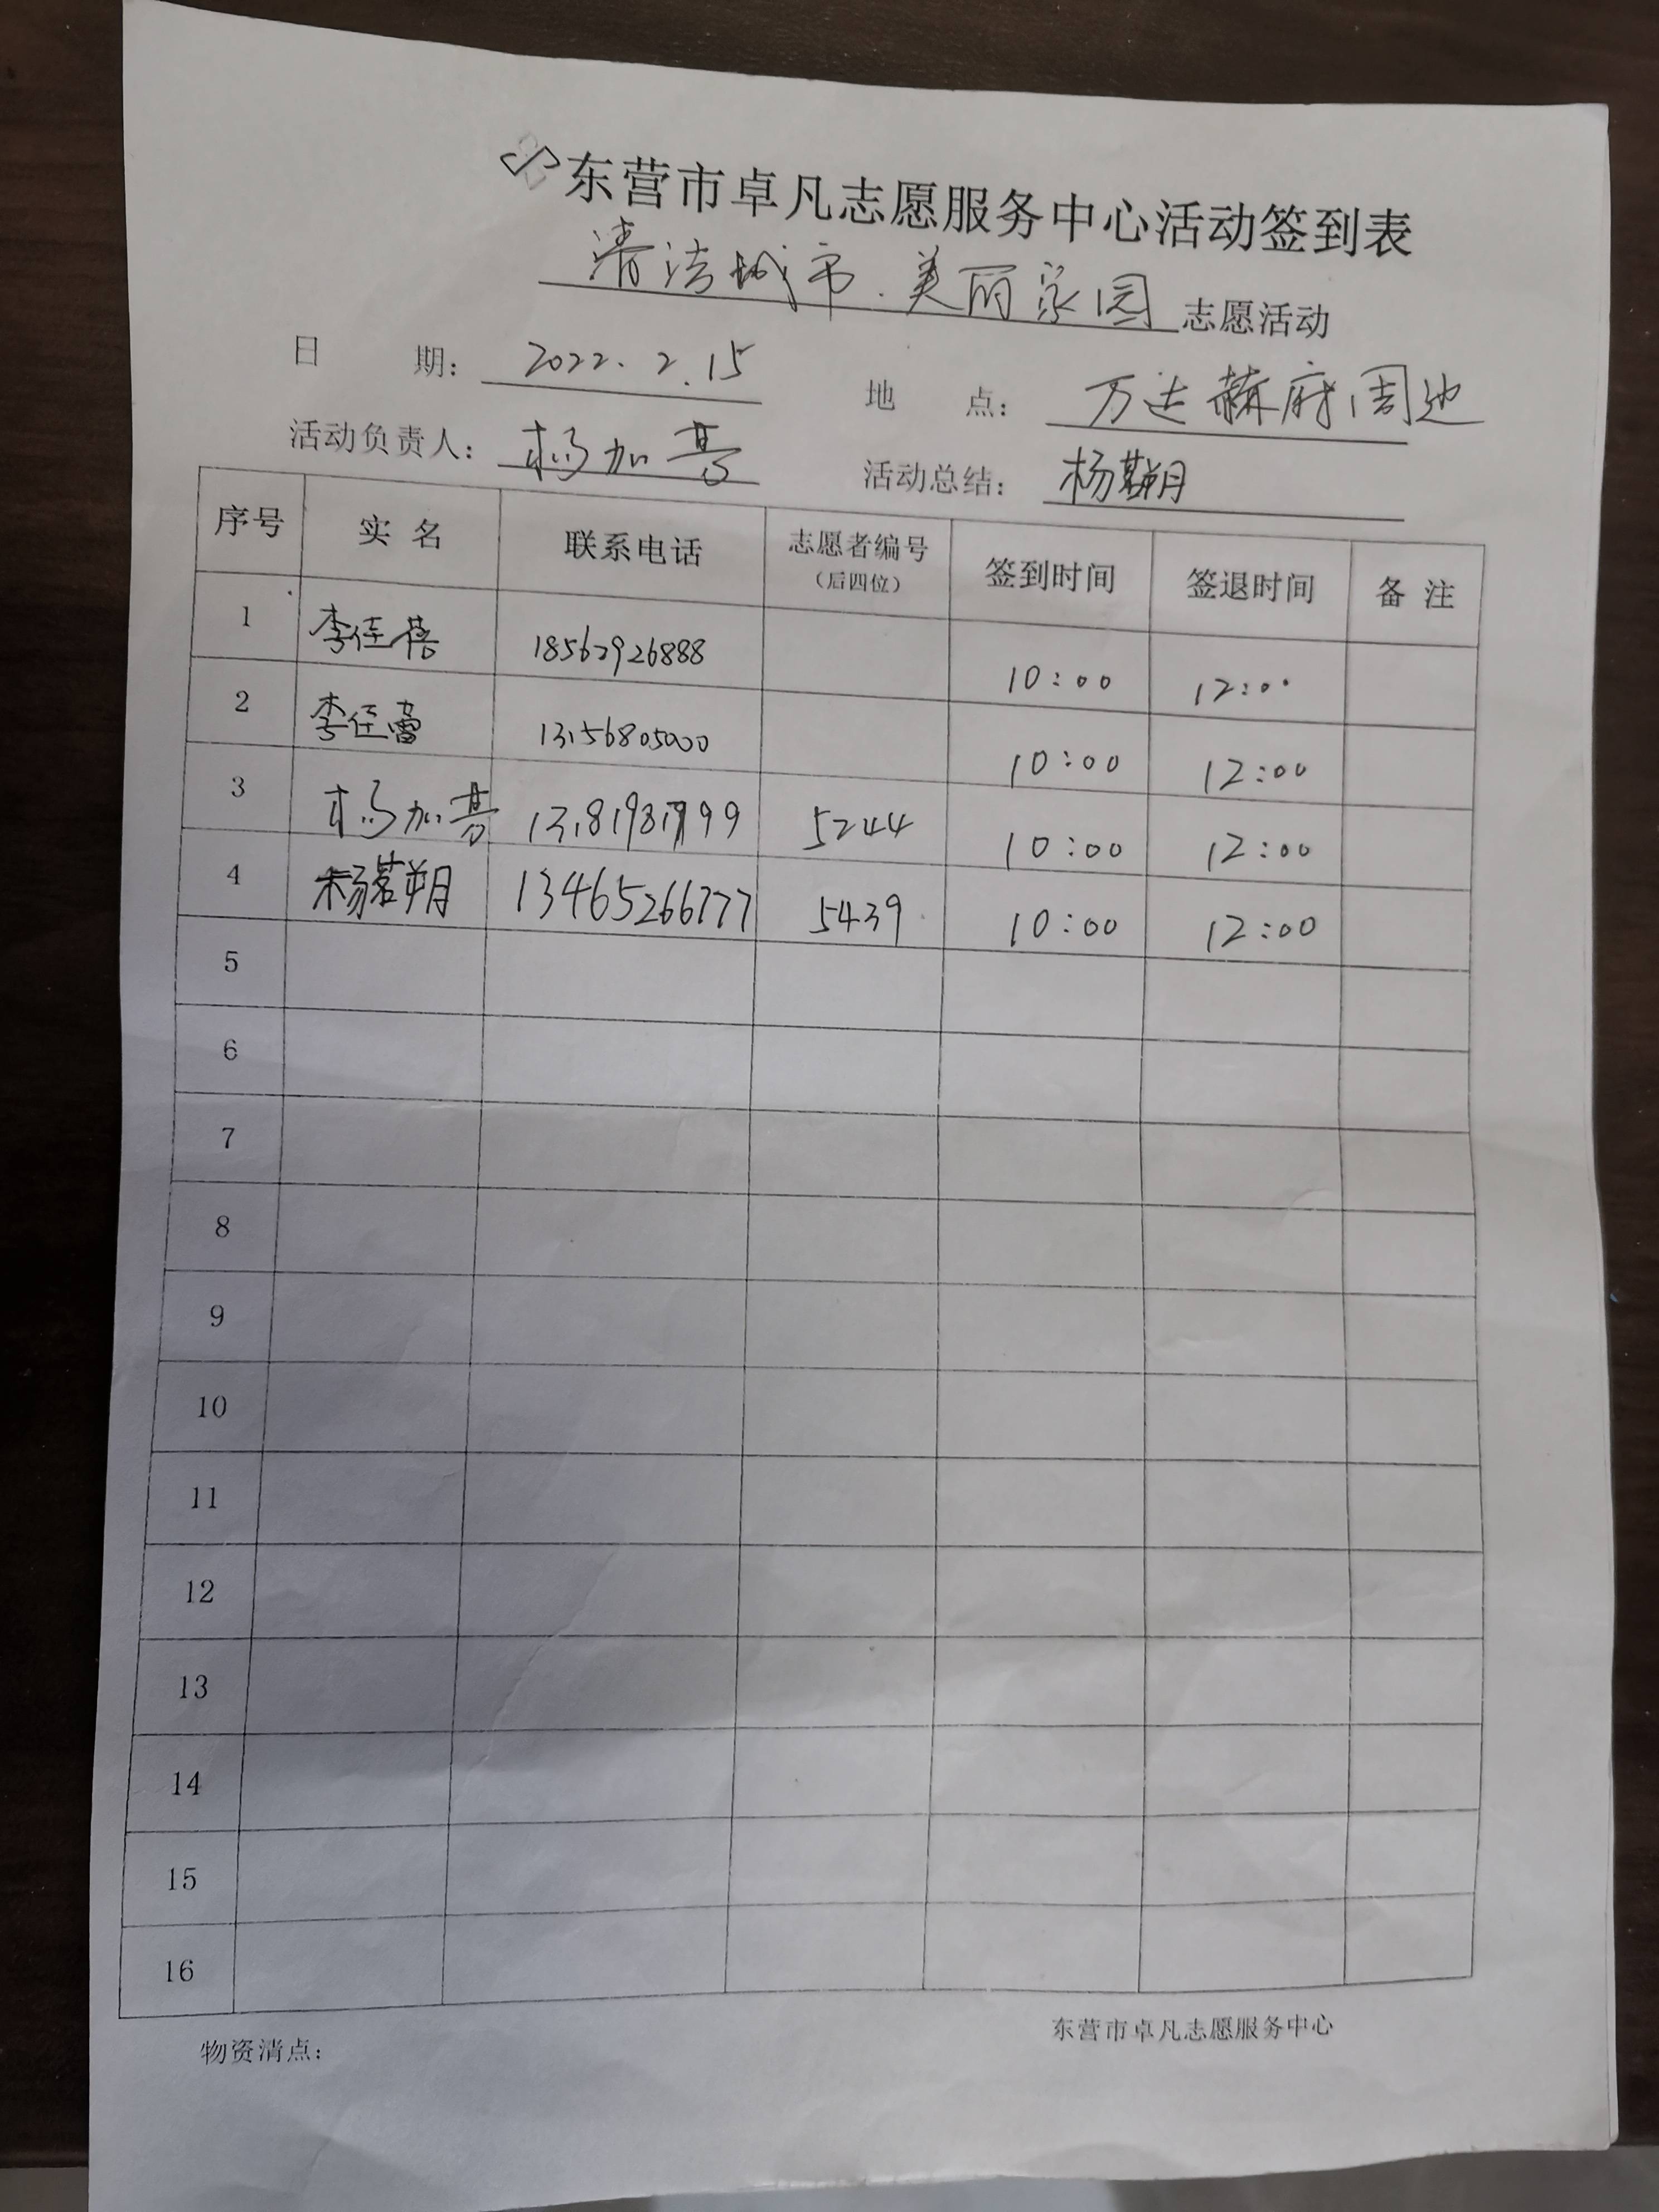 东营市卓凡志愿服务中心活动签到表
清洁城市.美丽家园 志愿活动
日 期: 2022.2.15 地 点: 万达赫府周边
活动负责人: 杨加 活动总结: 杨朔
序号 实名 联系电话 志愿者编号(后四位) 签到时间 签退时间 备注
1 李佳蓓 18562926888 10:00 12:00
2 李佳蕾 13156805000 10:00 12:00
3 杨加 5244 10:00 12:00
4 杨朔 13465266777 5439 10:00 12:00
5
6
7
8
9
10
11
12
13
14
15
16
物资清点: 东营市卓凡志愿服务中心